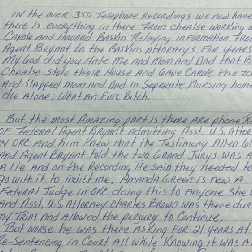 IN the over 350 Telephone Recordings we now have
there is everything in there From Cheatse working
Carole and Howard Baskin Relaying information From
Agent Bryant to the Baskin Attorneys For years
My God did you Hate me and mom and Dad that B
Cheatse stole their House and Gave Carole the Zoo
And slapped mom and Dad in seperate nursing homes
die Alone, what an Evil Bitch.
But the most Amazing part is there are phone
OF Federal Agent Bryant admitting Asst. U.S. Attor
IN OKC and him knew that the Testimony Allen
And Agent Bryant told the two Grand Jurys was A
Lie And on the Recording he said they needed to
Go with it to suit me. Amanda Green is now A
Federal Judge in OKC doing this to Anyone she
And Asst. U.S. Attorney Charles Brown was there
my Trial and Allowed the perjury to Continue.
But worse he was there Asking For 21 years At
Re-Sentencing in Court All while Knowing it was